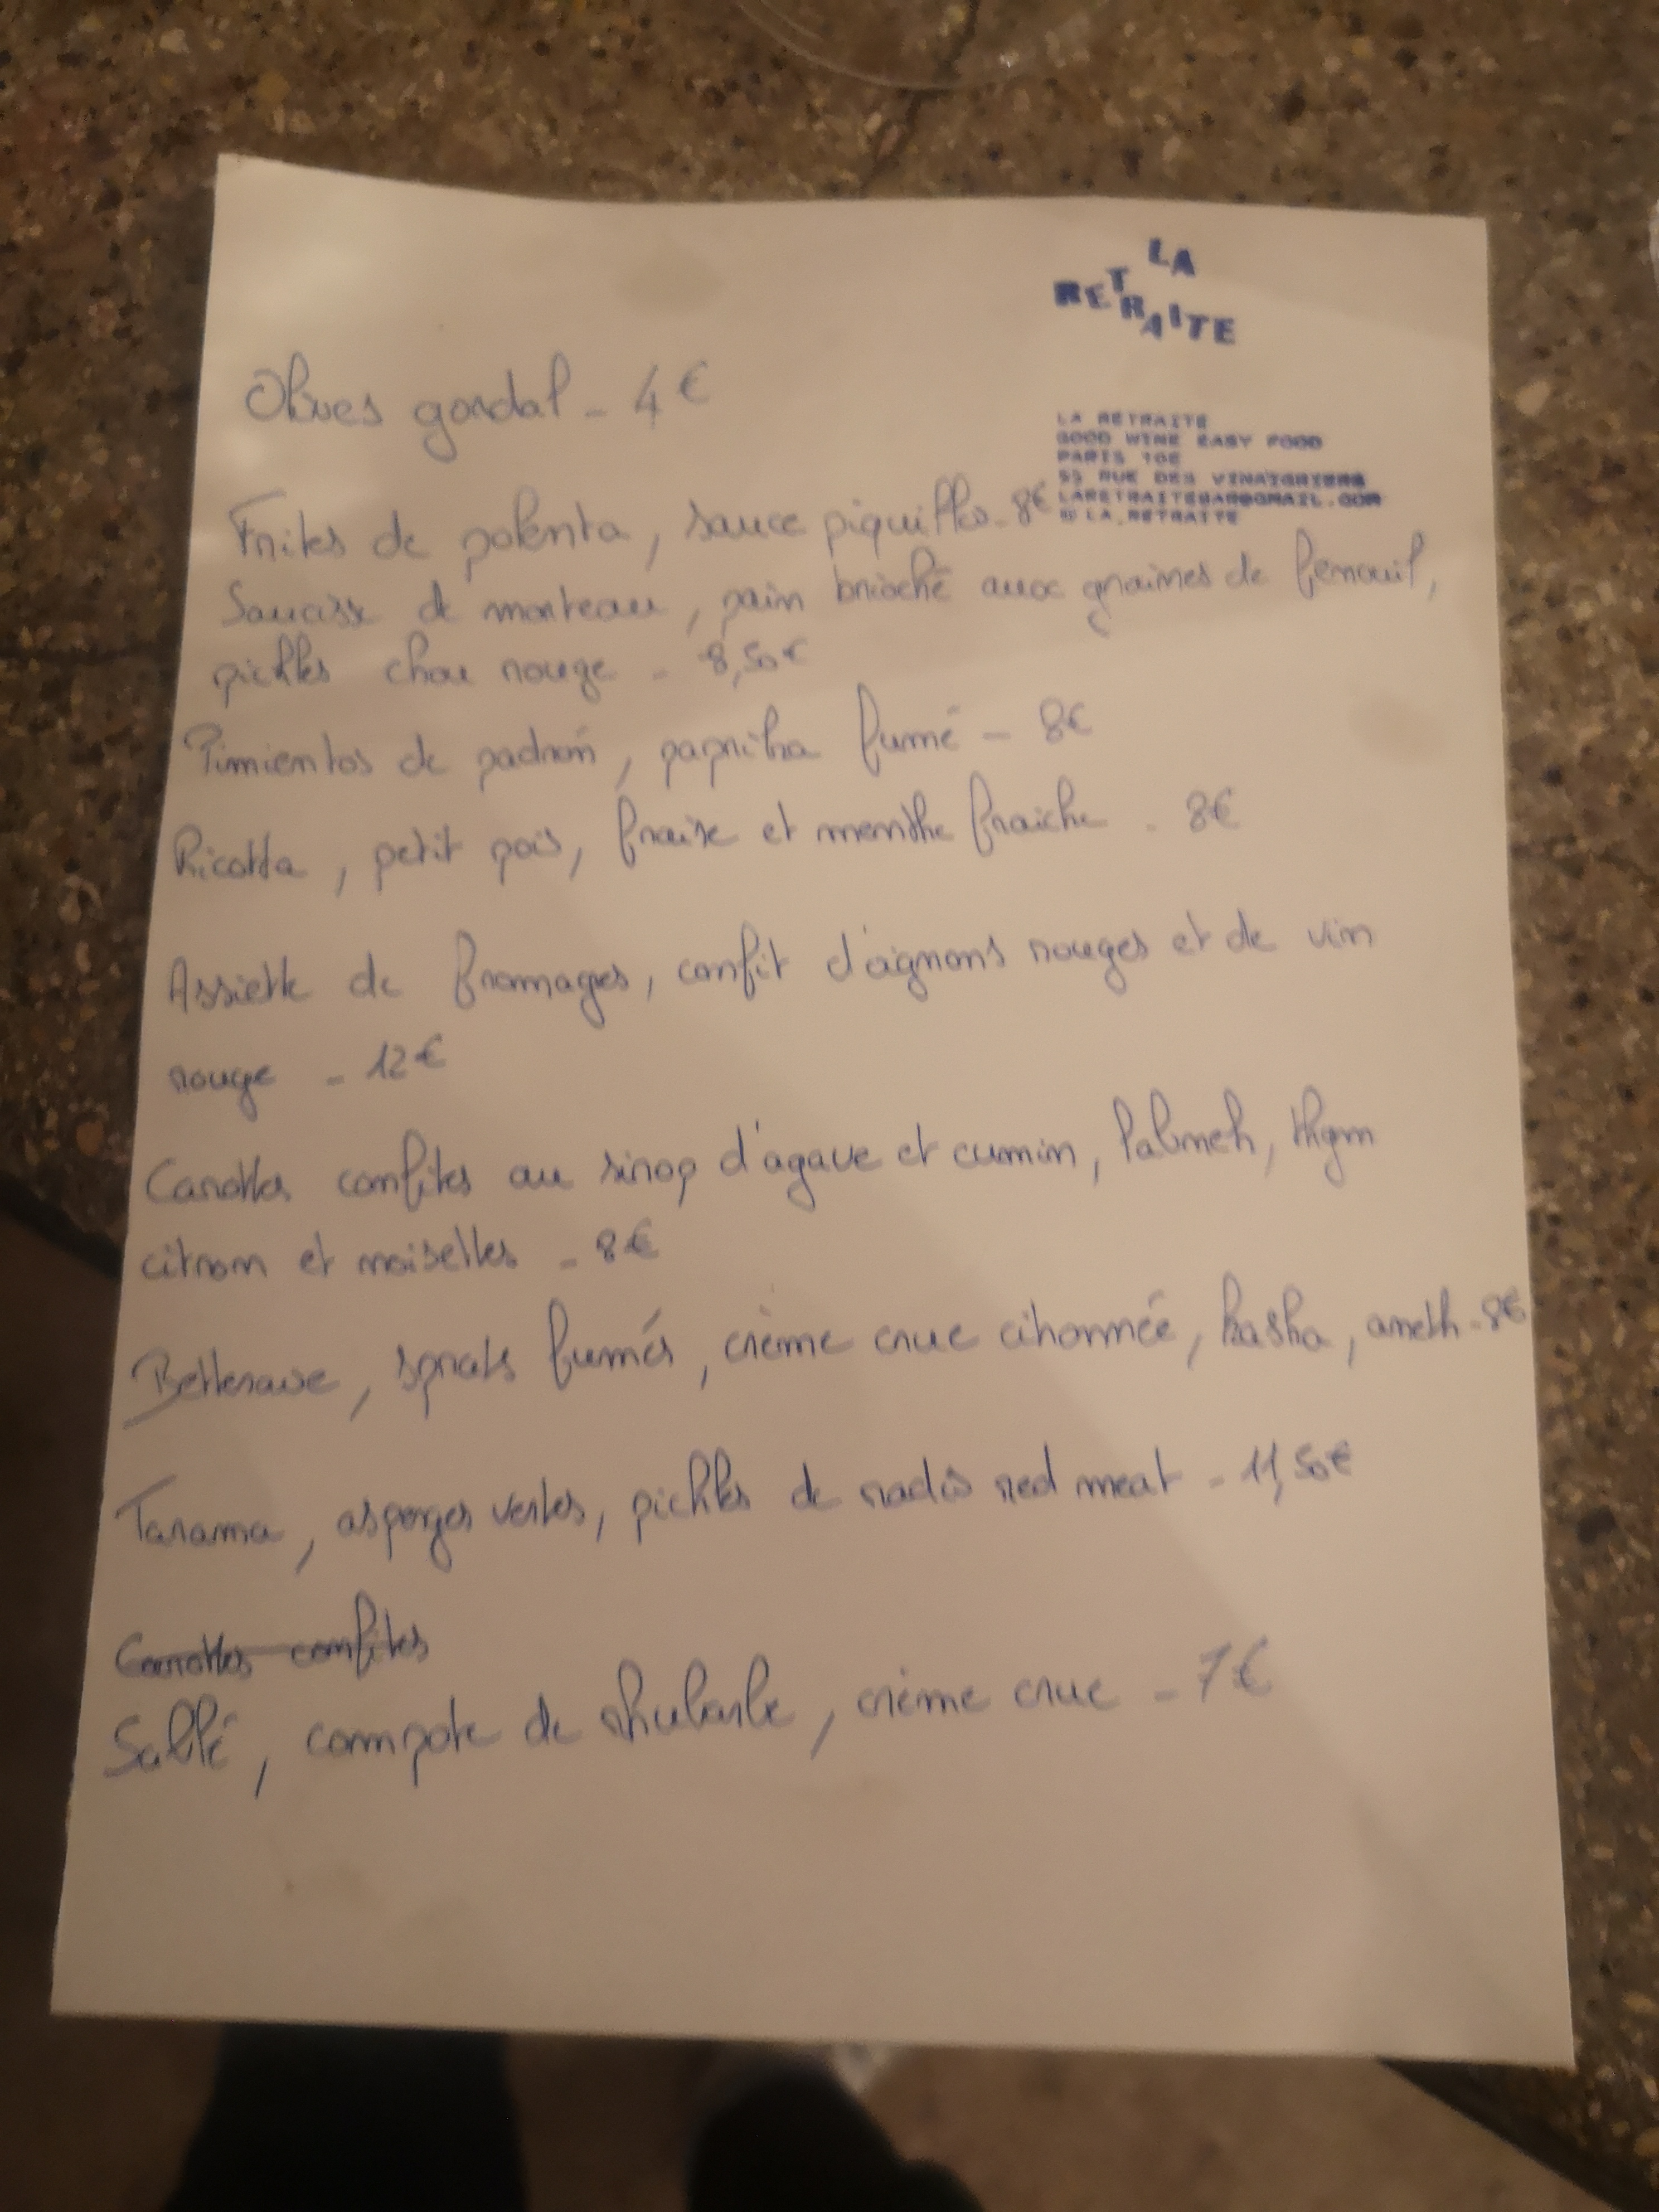 LA
RETRAITE
LA RETRAITE
GOOD WINE EASY FOOD
PARIS 10E
55 RUE DES VINAIGRIERS
LARETRAITEBAR@GMAIL.COM
@LA.RETRAITE
Olives gordal - 4€
Frites de polenta, sauce piquillos - 8€
Saucisse de morteau, pain brioché aux graines de fenouil,
pickles chou rouge - 8,50€
Pimientos de padrón, paprika fumé - 8€
Ricotta, petit pois, fraise et menthe fraiche - 8€
Assiette de fromages, confit d'oignons rouges et de vin
rouge - 12€
Carottes confites au sirop d'agave et cumin, labneh, thym
citron et noisettes - 8€
Betterave, sprats fumés, crème crue citronnée, kasha, aneth - 8€
Tarama, asperges vertes, pickles de radis red meat - 11,50€
Carottes confites
Sablé, compote de rhubarbe, crème crue - 7€